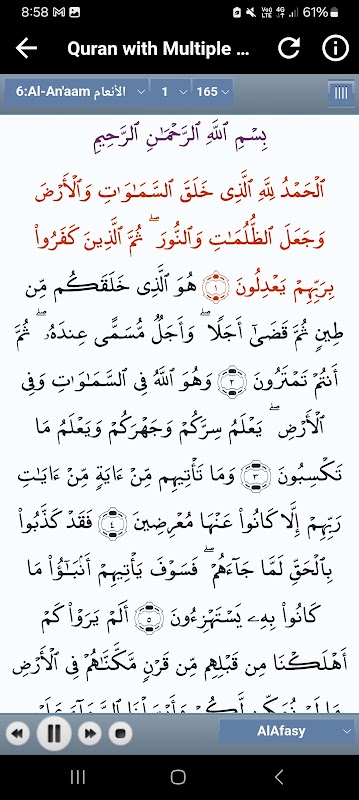 8:58 M Vo) LTE 4G 61%
Quran with Multiple ...
6:Al-An'aam الأنعام 1 165
بِسْمِ ٱللَّهِ ٱلرَّحْمَـٰنِ ٱلرَّحِيمِ
ٱلْحَمْدُ لِلَّهِ ٱلَّذِى خَلَقَ ٱلسَّمَـٰوَٰتِ وَٱلْأَرْضَ
وَجَعَلَ ٱلظُّلُمَـٰتِ وَٱلنُّورَ ۖ ثُمَّ ٱلَّذِينَ كَفَرُوا۟
بِرَبِّهِمْ يَعْدِلُونَ ١ هُوَ ٱلَّذِى خَلَقَكُم مِّن
طِينٍ ثُمَّ قَضَىٰٓ أَجَلًا ۖ وَأَجَلٌ مُّسَمًّى عِندَهُۥ ۖ ثُمَّ
أَنتُمْ تَمْتَرُونَ ٢ وَهُوَ ٱللَّهُ فِى ٱلسَّمَـٰوَٰتِ وَفِى
ٱلْأَرْضِ ۖ يَعْلَمُ سِرَّكُمْ وَجَهْرَكُمْ وَيَعْلَمُ مَا
تَكْسِبُونَ ٣ وَمَا تَأْتِيهِم مِّنْ ءَايَةٍ مِّنْ ءَايَـٰتِ
رَبِّهِمْ إِلَّا كَانُوا۟ عَنْهَا مُعْرِضِينَ ٤ فَقَدْ كَذَّبُوا۟
بِٱلْحَقِّ لَمَّا جَآءَهُمْ ۖ فَسَوْفَ يَأْتِيهِمْ أَنۢبَـٰٓؤُا۟ مَا
كَانُوا۟ بِهِۦ يَسْتَهْزِءُونَ ٥ أَلَمْ يَرَوْا۟ كَمْ
أَهْلَكْنَا مِن قَبْلِهِم مِّن قَرْنٍ مَّكَّنَّـٰهُمْ فِى ٱلْأَرْضِ
مَا لَمْ نُمَكِّن لَّكُمْ وَأَرْسَلْنَا ٱلسَّمَآءَ عَلَيْ
AlAfasy